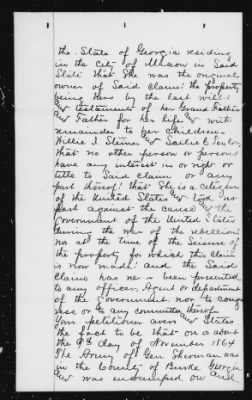 the State of Georgia residing
in the City of Macon in Said
State that She was the original
owner of Said claim: the property
being hers by the last will
& testament of her Grand Father
& Father for her life & with
remainder to her Children
Willie J. Steiner & Sallie E. Taylor,
that no other person or persons
have any interest in or right or
title to Said claim or any
part thereof: that She is a citizen
of the United States & took no
part against the cause & the
Government of the United States
during the war of the rebellion
nor at the time of the Seizure of
the property for which this claim
is now made: and the Said
claim has never been presented
to any officer, Agent or department
of the Government nor to cong
ress or to any committee thereof
Your petitioner avers & States
the fact to be that on or about
the day of November 1864
The Army of Gen Sherman was
in the County of Burke Georgia
& was encamped on and